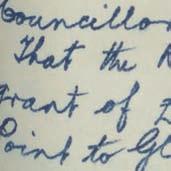 Councillor
That the
grant of
Point to Gl